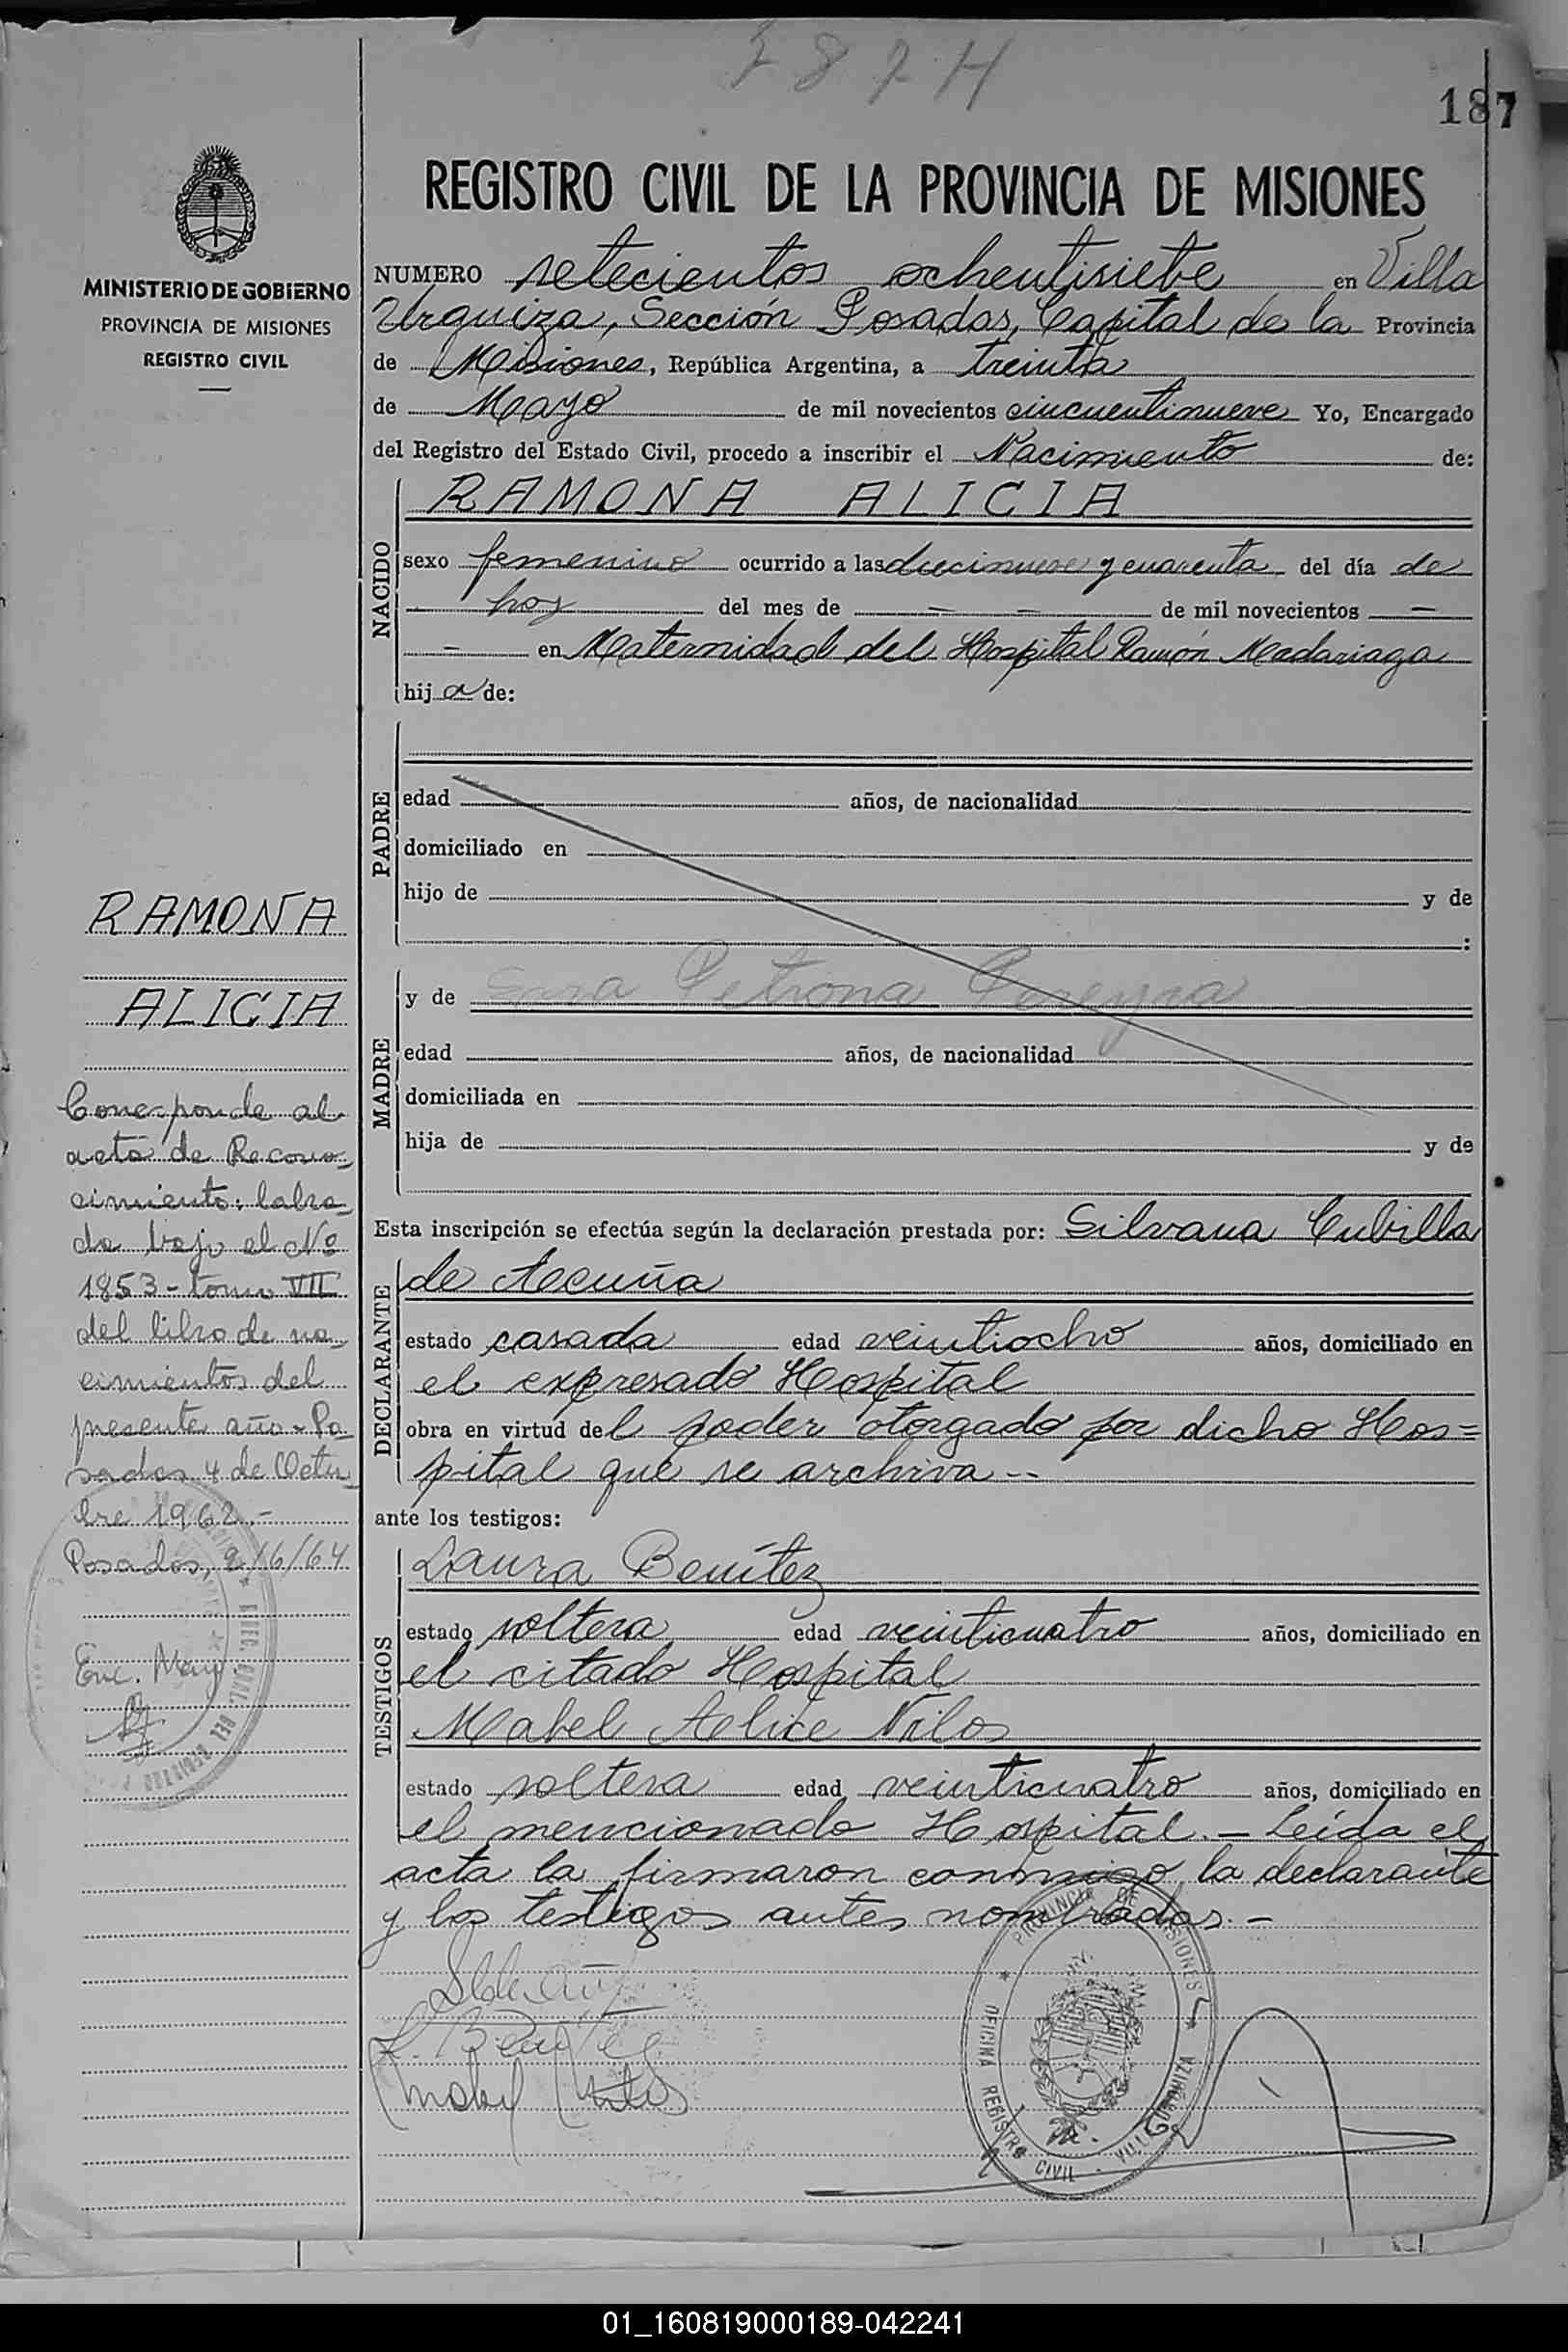 187
REGISTRO CIVIL DE LA PROVINCIA DE MISIONES
MINISTERIO DE GOBIERNO
PROVINCIA DE MISIONES
REGISTRO CIVIL
NUMERO setecientos ochentisiete en Villa
Urquiza, Sección Posadas, Capital de la Provincia
de Misiones, República Argentina, a treinta
de Mayo de mil novecientos cincuentinueve Yo, Encargado
del Registro del Estado Civil, procedo a inscribir el Nacimiento de:
NACIDO
RAMONA ALICIA
sexo femenino ocurrido a las diecinueve y cuarenta del día de
hoy del mes de — — de mil novecientos —
— en Maternidad del Hospital Ramón Madariaga
hij a de:
PADRE
edad años, de nacionalidad
domiciliado en
hijo de y de
:
MADRE
y de Petrona Pereyra
edad años, de nacionalidad
domiciliada en
hija de y de
Esta inscripción se efectúa según la declaración prestada por: Silvana Cubilla
DECLARANTE
de Acuña
estado casada edad veintiocho años, domiciliado en
el expresado Hospital
obra en virtud del poder otorgado por dicho Hos=
pital que se archiva.--
ante los testigos:
TESTIGOS
Laura Benítez
estado soltera edad veinticuatro años, domiciliado en
el citado Hospital
Mabel Nilos
estado soltera edad veinticuatro años, domiciliado en
el mencionado Hospital.- Leída el
acta la firmaron conmigo, la declarante
y los testigos antes nombrados.-
L. Benítez
Mabel
PROVINCIA DE MISIONES
OFICINA REGISTRO CIVIL - VILLA URQUIZA
RAMONA
ALICIA
Corresponde al
acta de Recono-
cimiento: labra-
da bajo el Nº
1853 - tomo VII
del libro de na-
cimientos del
presente año - Po-
sadas 4 de Octu-
bre 1962.-
Posadas, 2/6/64
01_160819000189-042241